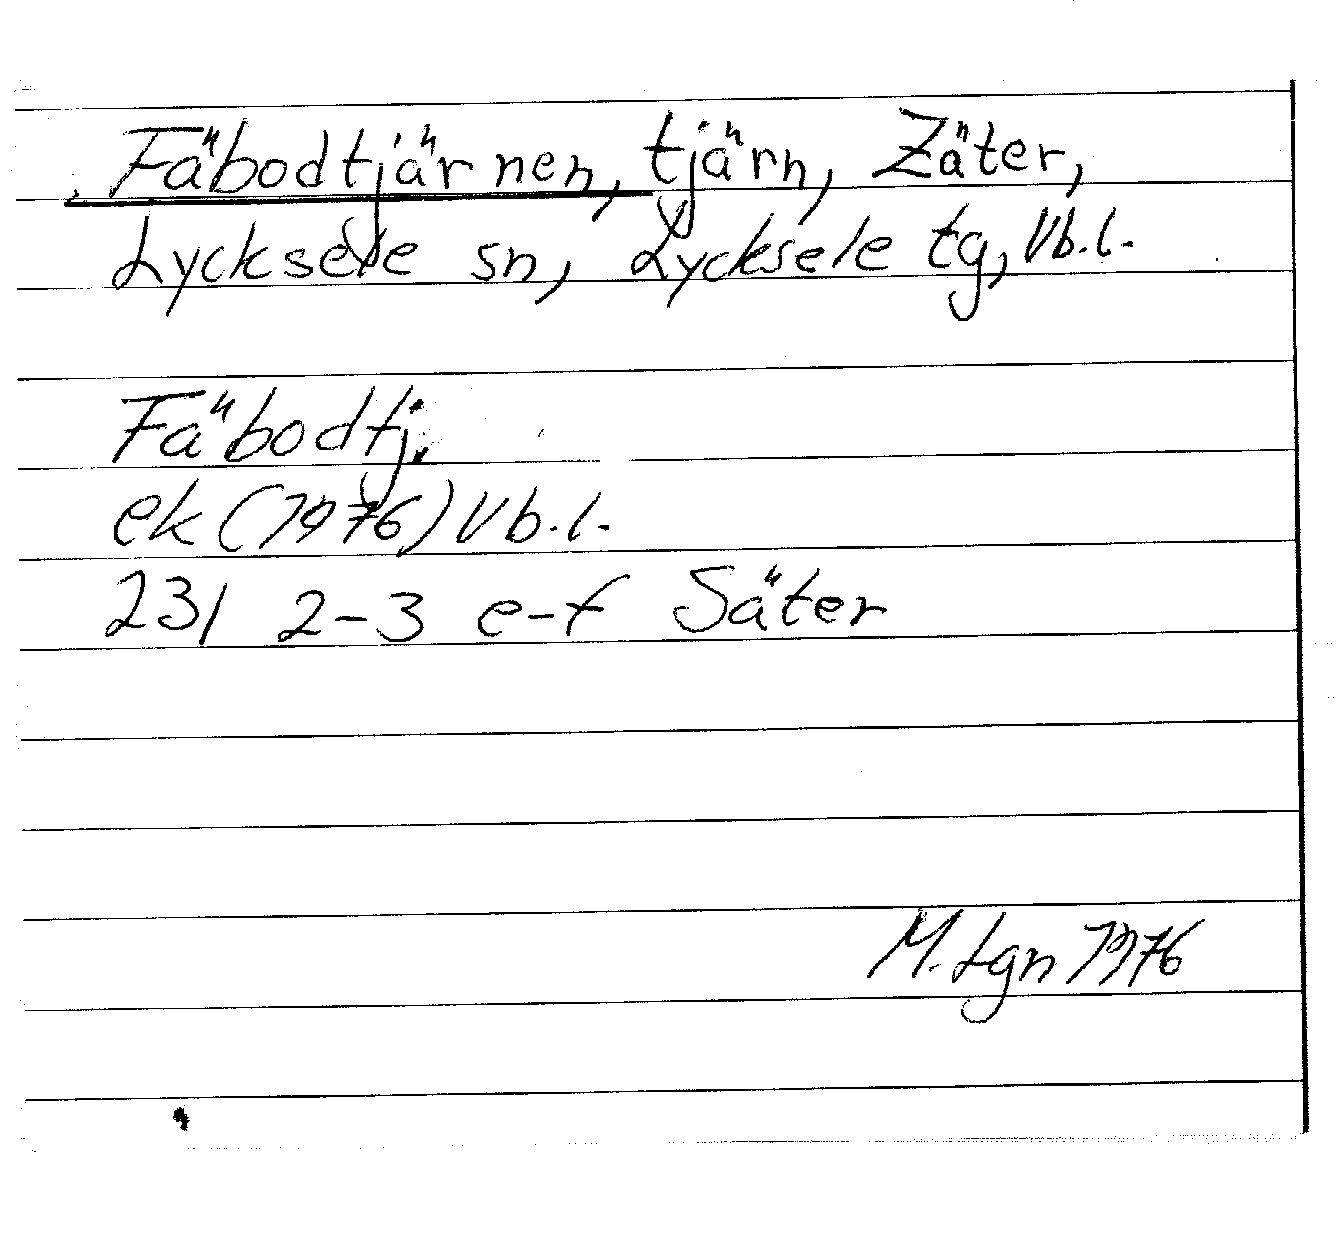 Fäbodtjärnen, tjärn, Zäter,
Lycksele sn, Lycksele tg, Vb.l.
Fäbodtj.
ek (1976) Vb.l.
23I 2-3 e-f Säter
M. Lgn 1976